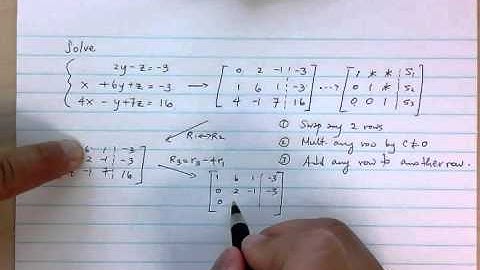 Solve
2y-z=-3
x +6y+z=-3
4x -y+7z=16
0 2 -1 -3
1 6 1 -3
4 -1 7 16
1 * * S₁
0 1 * S₂
0 0 1 S₃
① Swap any 2 rows
② Mult any row by C≠0
③ Add any row to another row.
R₁↔R₂
6 1 -3
2 -1 -3
-1 7 16
R₃=r₃-4r₁
1 6 1 -3
0 2 -1 -3
0